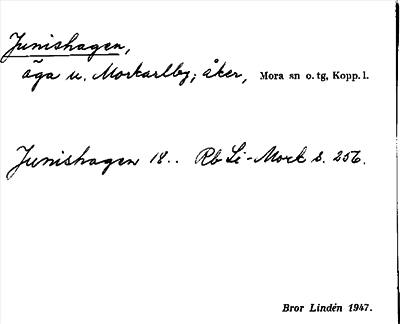 Junishagen,
äga u. Morkarlby; åker, Mora sn o. tg, Kopp. l.
Junishagen 18.. Rb Li-Mork s. 256.
Bror Lindén 1947.